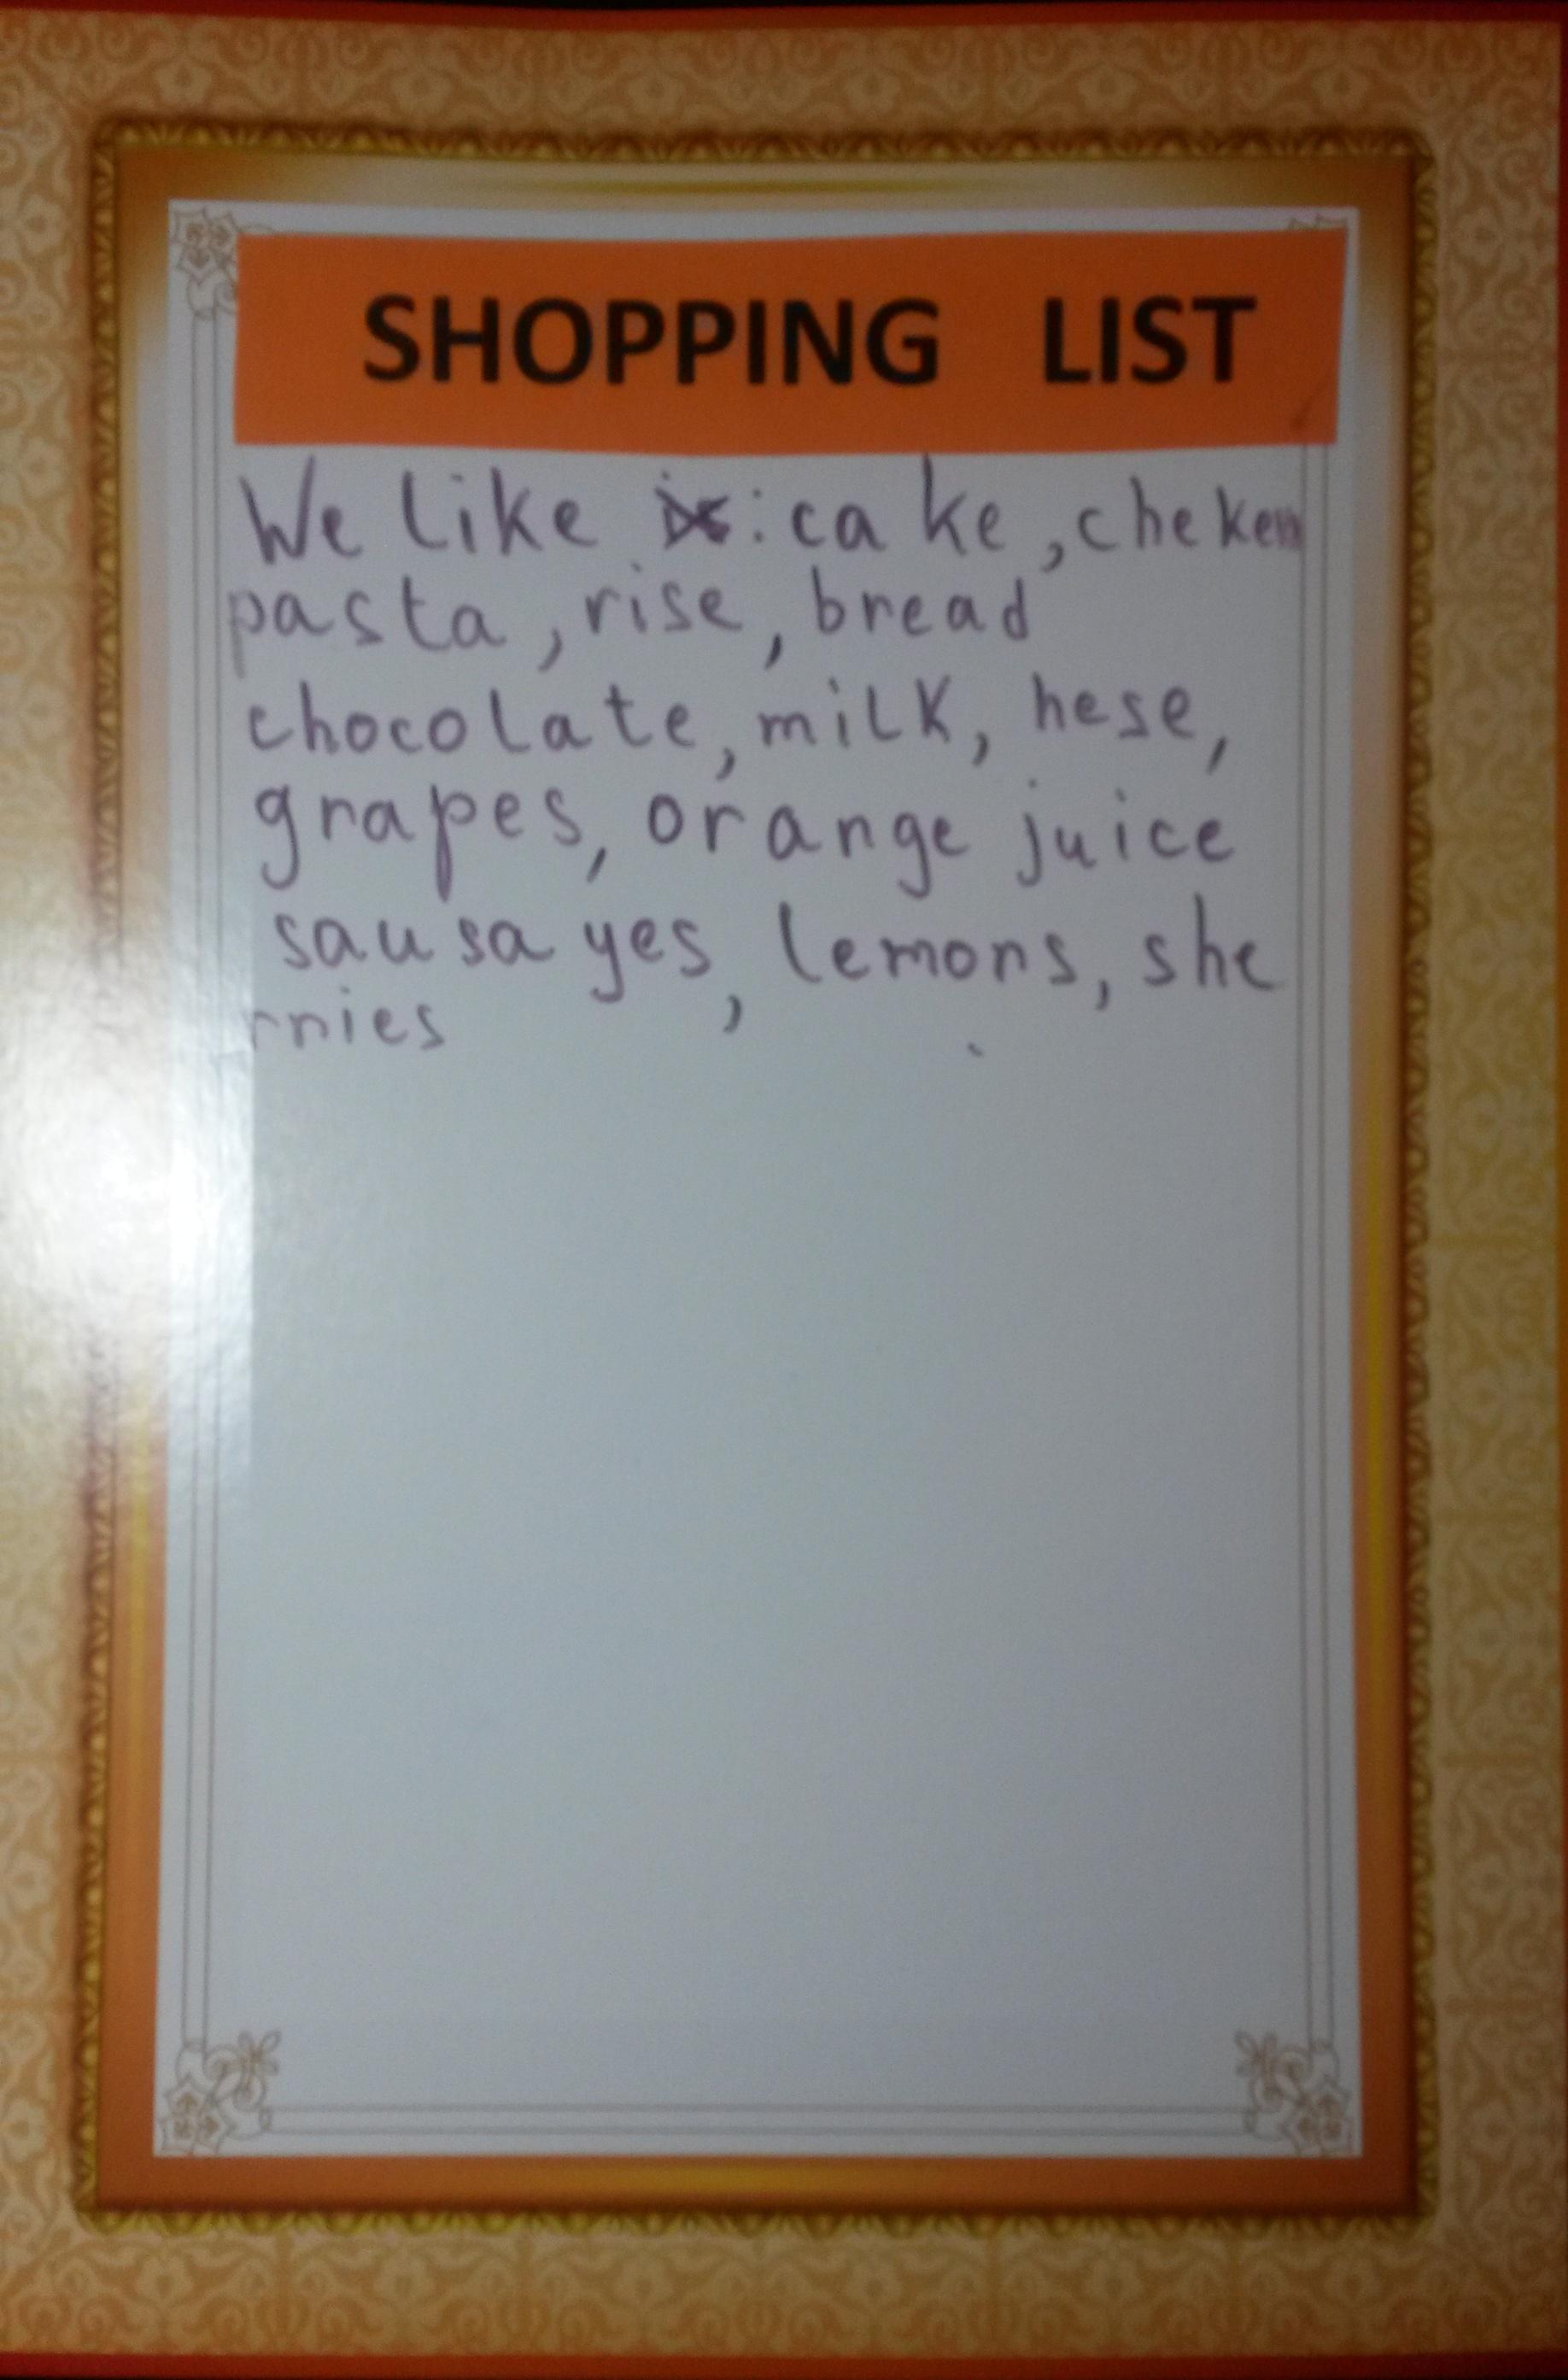 SHOPPING LIST
We like : cake, cheken
pasta, rise, bread
chocolate, milk, hese,
grapes, orange juice
sausayes, lemons, she
rries